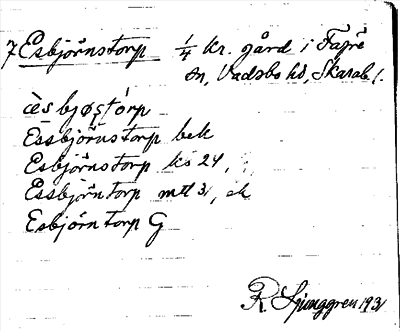 7 Esbjörnstorp 1/4 kr. gård i Fägre
sn, Vadsbo hd, Skarab l.
èsbjøṣtórp
Essbjörnstorp bek
Esbjörnstorp ks 24,
Essbjörntorp mtl 31, ek
Esbjörntorp G
R. Ljunggren 1931